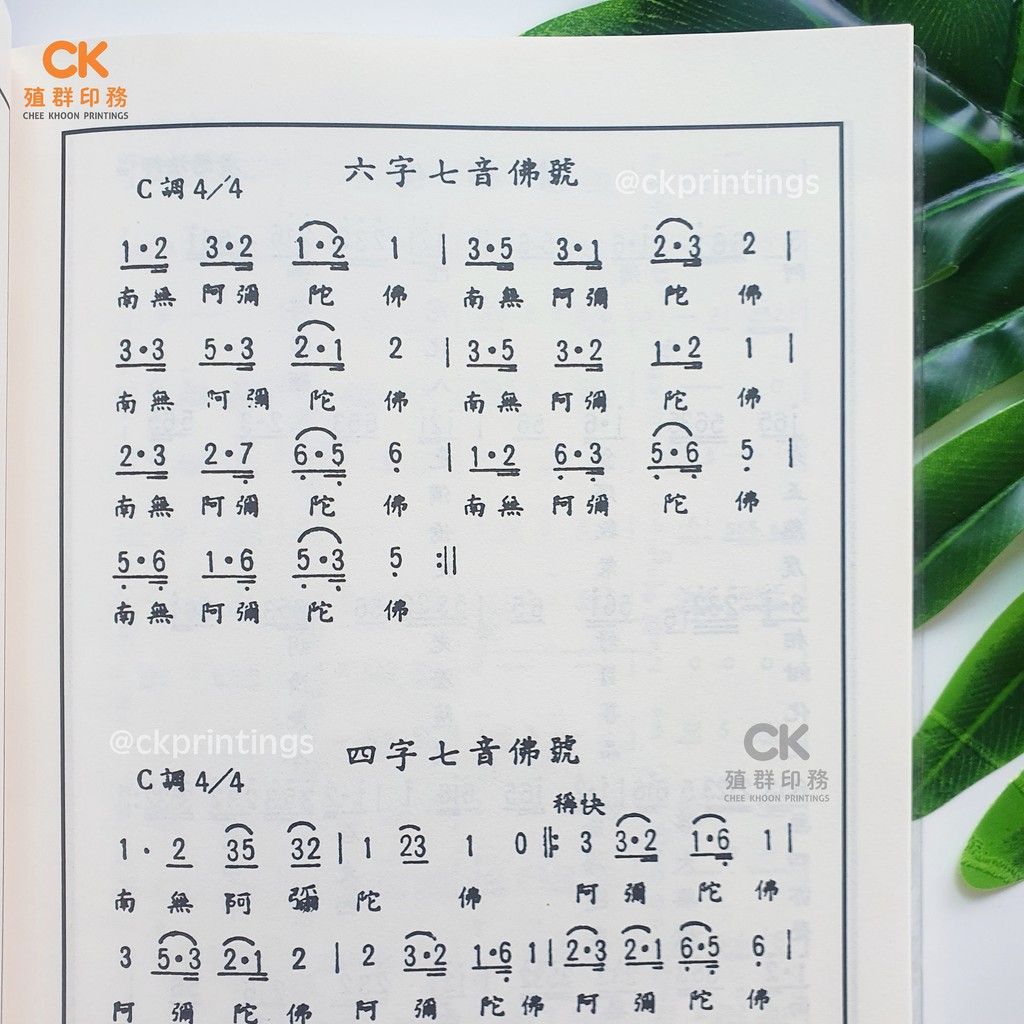 CK
殖群印務
CHEE KHOON PRINTINGS
六字七音佛號
@ckprintings
C調4/4
1·2 3·2 1·2 1 | 3·5 3·1 2·3 2 |
南無 阿彌 陀 佛 南無 阿彌 陀 佛
3·3 5·3 2·1 2 | 3·5 3·2 1·2 1 |
南無 阿彌 陀 佛 南無 阿彌 陀 佛
2·3 2·7 6·5 6 | 1·2 6·3 5·6 5 |
南無 阿彌 陀 佛 南無 阿彌 陀 佛
5·6 1·6 5·3 5 :||
南無 阿彌 陀 佛
@ckprintings
四字七音佛號
CK
殖群印務
CHEE KHOON PRINTINGS
C調4/4
稱快
1· 2 35 32 | 1 23 1 0 ||: 3 3·2 1·6 1 |
南 無 阿 彌 陀 佛 阿 彌 陀 佛
3 5·3 2·1 2 | 2 3·2 1·6 1 | 2·3 2·1 6·5 6 |
阿 彌 陀 佛 阿 彌 陀 佛 阿 彌 陀 佛